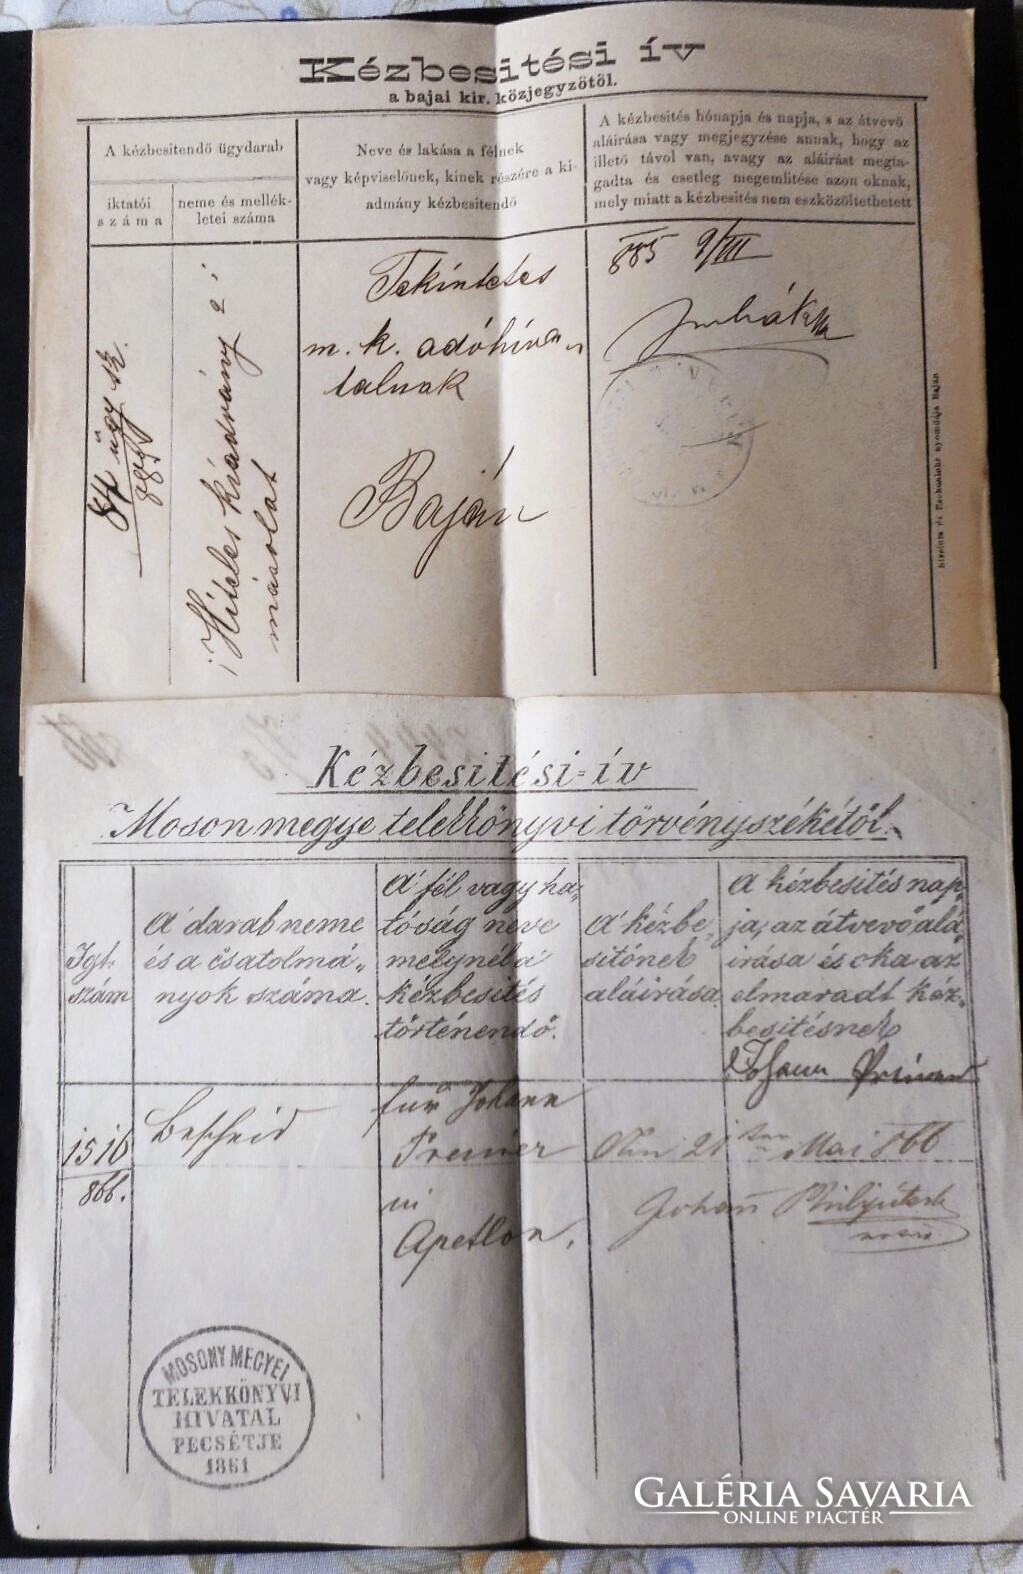 Kézbesitési ív
a bajai kir. közjegyzötöl.
A kézbesitendö ügydarab
iktatói
száma
neme és mellék-
letei száma
Neve és lakása a félnek
vagy képviselönek, kinek részére a ki-
admány kézbesitendö
A kézbesités hónapja és napja, s az átvevö
aláirása vagy megjegyzése annak, hogy az
illetö távol van, avagy az aláirást megta-
gadta és esetleg megemlitése azon oknak,
mely miatt a kézbesités nem eszközöltethetett
84 ügy sz.
885
Hiteles kiadvány és
másolat
Tekintetes
m. k. adóhiva-
talnak
Baján
885 9/III
nyomdája Baján
Kézbesitési-ív
Moson megye telekkönyvi törvényszékétöl.
Igt.
szám
A darab neme
és a csatolmá„
nyok száma.
A fél vagy ha„
tóság neve
melynél a
kézbesités
történendö.
A kézbe„
sitönek
aláirása.
A kézbesités nap„
ja, az átvevö alá„
irása és oka az
elmaradt kéz„
besitésnek
Johann
1516
866.
Bescheid
für Johann
in
Apetlon.
21 Mai 866
Johann
MOSONY MEGYEI
TELEKKÖNYVI
HIVATAL
PECSÉTJE
1861
GALÉRIA SAVARIA
ONLINE PIACTÉR